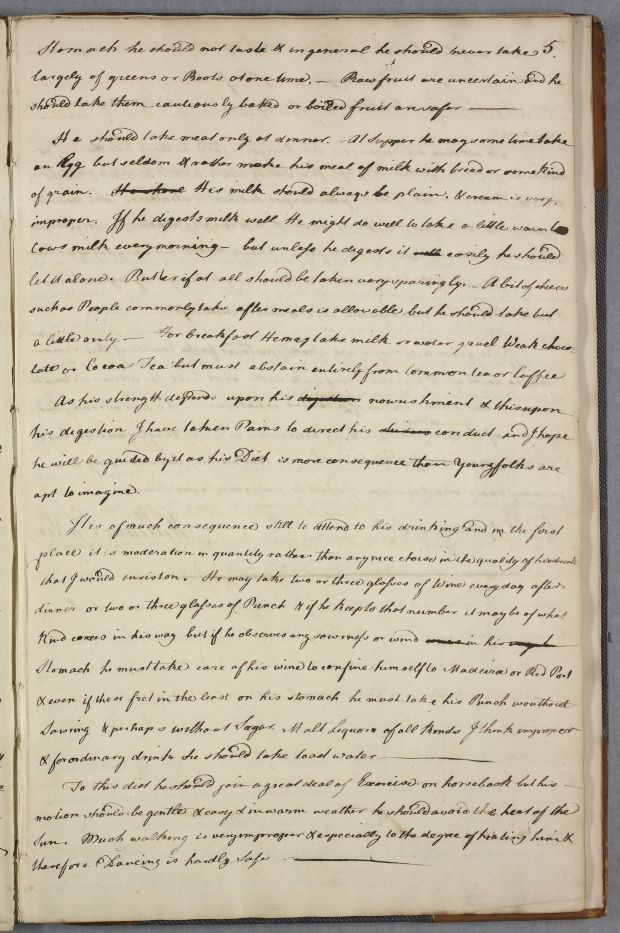 Stomach he should not taste & in general he should never take 5.
largely of greens or Roots at one time. — Raw fruit are uncertain and he
should take them cautiously baked or boiled fruit are safer ———
He should take meat only at dinner. At Supper he may some time take
an Egg but seldom & rather make his meal of milk with bread or some kind
of grain. He should His milk should always be plain, & cream is very
improper. If he digests milk well He might do well to take a little warm
Cows milk every morning — but unless he digests it easily he should
let it alone. Butter if at all should be taken very sparingly. — A bit of cheese
such as People commonly take after meals is allowable but he should take but
a little only. — For breakfast He may take milk or water gruel Weak choco-
late or Cocoa Tea but must abstain entirely from Common tea or Coffee
As his strength depends upon his digestion nourishment & this upon
his digestion I have taken Pains to direct his conduct and I hope
he will be guided by it as his Diet is more consequence than Young folks are
apt to imagine.
It is of much consequence still to attend to his drinking and in the first
place it is moderation in quantity rather than any nice choise in the quality of his drink
that I would insist on. He may take two or three glasses of Wine every day after
dinner or two or three glasses of Punch & if he keep to that number it may be of what
Kind comes in his way but if he observes any sowrness or wind in his
Stomach he must take care of his wine to confine himself to Madeira or Red Port
& even if these fret in the least on his stomach he must take his Punch without
Souring & perhaps without Sugar. Malt Liquors of all Kinds I think improper
& for ordinary drink he should take toast water ———
To this diet he should join a great deal of Exercise on horseback but his
motion should be gentle & easy & in warm weather he should avoid the heat of the
Sun. Much walking is very improper & especially to the degree of heating him &
therefore Dancing is hardly Safe ———